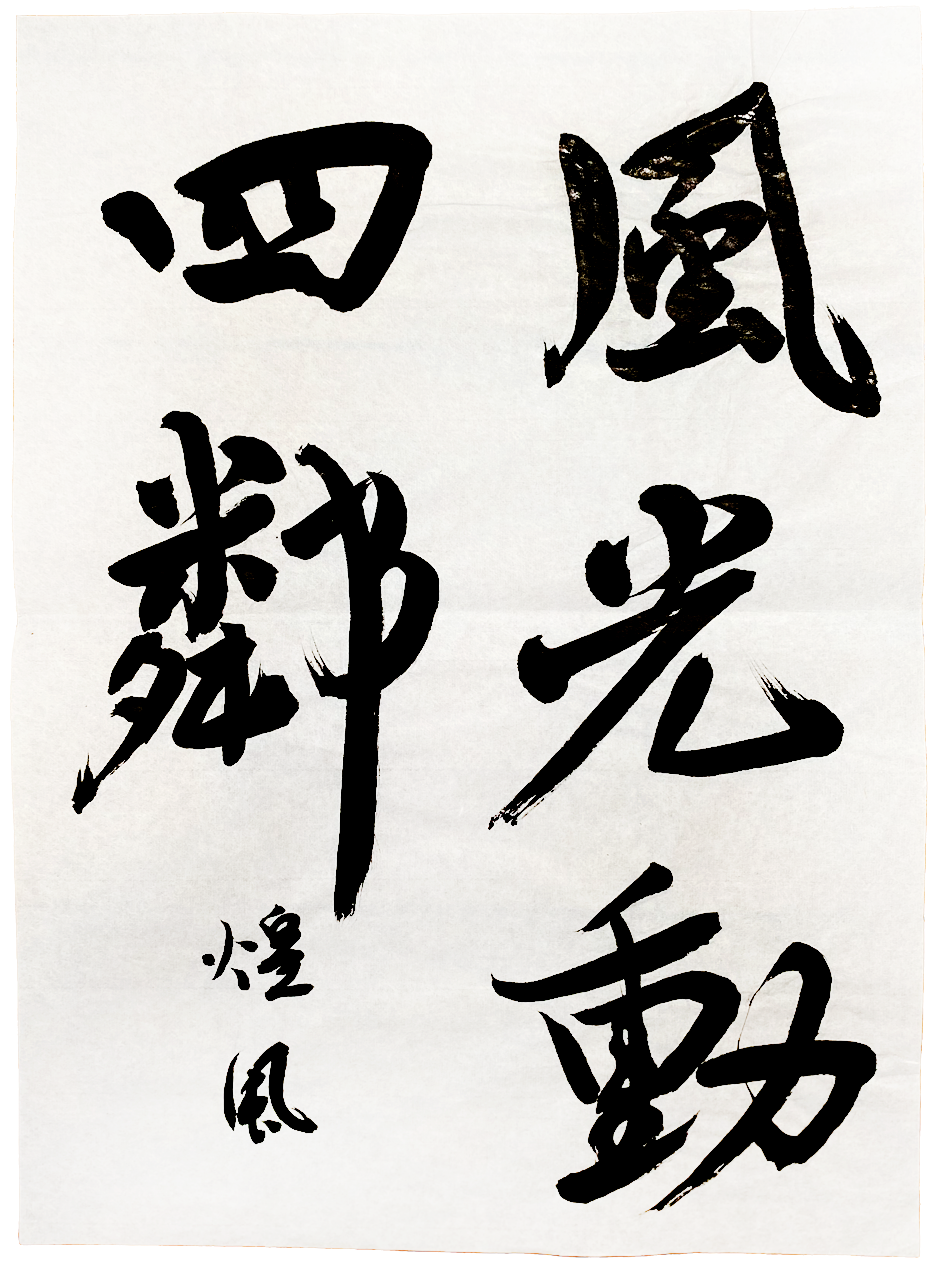 風光動
四鄰
煌風